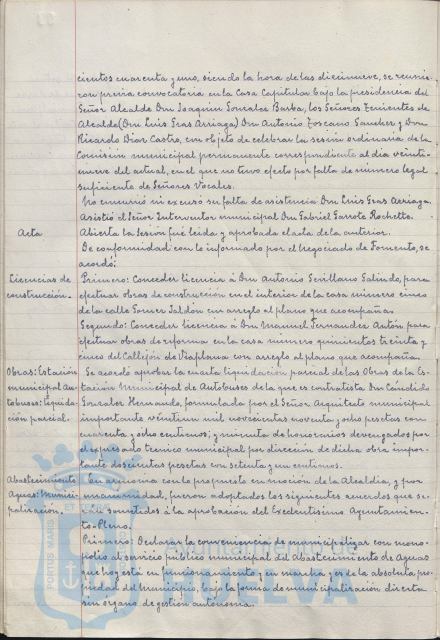 cientos cuarenta y uno, siendo la hora de las diecinueve, se reunie-
ron previa convocatoria en la Casa Capitular bajo la presidencia del
Señor Alcalde Don Joaquin Gonzalez Barba, los Señores Tenientes de
Alcalde (Don Luis Gras Arriaga) Don Antonio Toscano Sanchez y Don
Ricardo Dias Castro, con objeto de celebrar la sesión ordinaria de la
Comisión municipal permanente correspondiente al dia veinti-
nueve del actual, en el que no tuvo efecto por falta de número legal
suficiente de Señores Vocales.
No concurrió ni excusó su falta de asistencia Don Luis Gras Arriaga.
Asistió el Señor Interventor municipal Don Gabriel Garrote Rochette.
Acta
Abierta la sesión fué leida y aprobada el acta de la anterior.
De conformidad con lo informado por el Negociado de Fomento, se
acordó:
Licencias de
construcción.
Primero: Conceder licencia á Don Antonio Sevillano Galindo, para
efectuar obras de construcción en el interior de la casa número cinco
de la calle Gomez Jaldon con arreglo al plano que acompaña.
Segundo: Conceder licencia á Don Manuel Fernandez Antón para
efectuar obras de reforma en la casa número quinientos treinta y
cinco del Callejón de Viaplana con arreglo al plano que acompaña.
Obras: Estación
municipal Au-
tobuses: liquida-
ción parcial.
Se acordó aprobar la cuarta liquidación parcial de las Obras de la Es-
tación Municipal de Autobuses de la que es contratista Don Cándido
Gonzalez Hernando, formulado por el Señor Arquitecto municipal
importante veintiun mil novecientos noventa y ocho pesetas con
cuarenta y ocho centimos; y minuta de honorarios devengados por
el expresado técnico municipal por dirección de dicha obra impor-
tante doscientas pesetas con setenta y un centimos.
Abastecimiento
Aguas: Munici-
palización.
En armonia con lo propuesto en moción de la Alcaldia, y por
unanimidad, fueron adoptados los siguientes acuerdos que se-
rán sometidos á la aprobación del Excelentisimo Ayuntamien-
to-Pleno.
Primero: Declarar la conveniencia de municipalizar con mono-
polio el servicio público municipal del Abastecimiento de Aguas
que hoy está en funcionamiento y en marcha y es de la absoluta pro-
piedad del Municipio, bajo la forma de municipalización directa
sin órgano de gestión autónoma.
PORTUS MARIS
ET
HUELVA